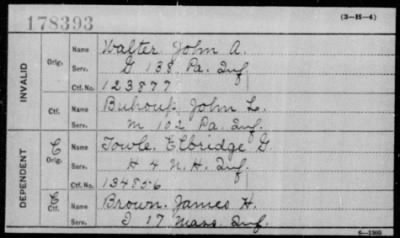 178393
(3-H-4)
INVALID
Orig.
Name Walter John A.
Serv. G 138 Pa. Inf
Ctf. No. 123877
Ctf.
Name Buhoup, John L.
Serv. M 102 Pa. Inf.
DEPENDENT
C
Orig.
Name Towle, Elbridge G.
Serv. H 4 N.H. Inf.
Ctf. No. 134856
C
Ctf.
Name Brown, James H.
Serv. I 17 Mass. Inf.